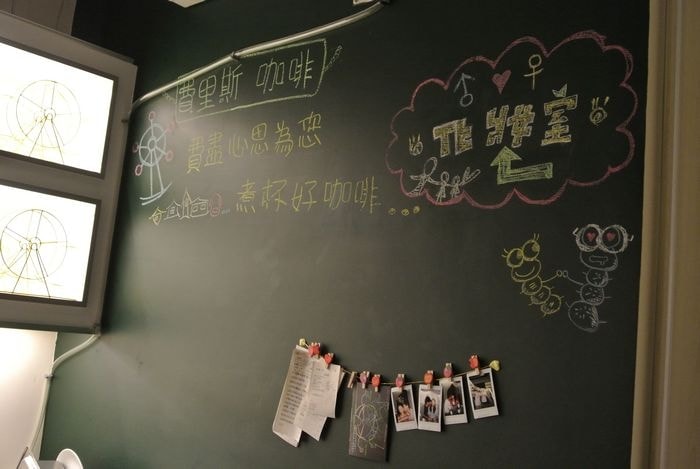 費里斯 咖啡
費盡心思為您
煮杯好咖啡...
化妝室